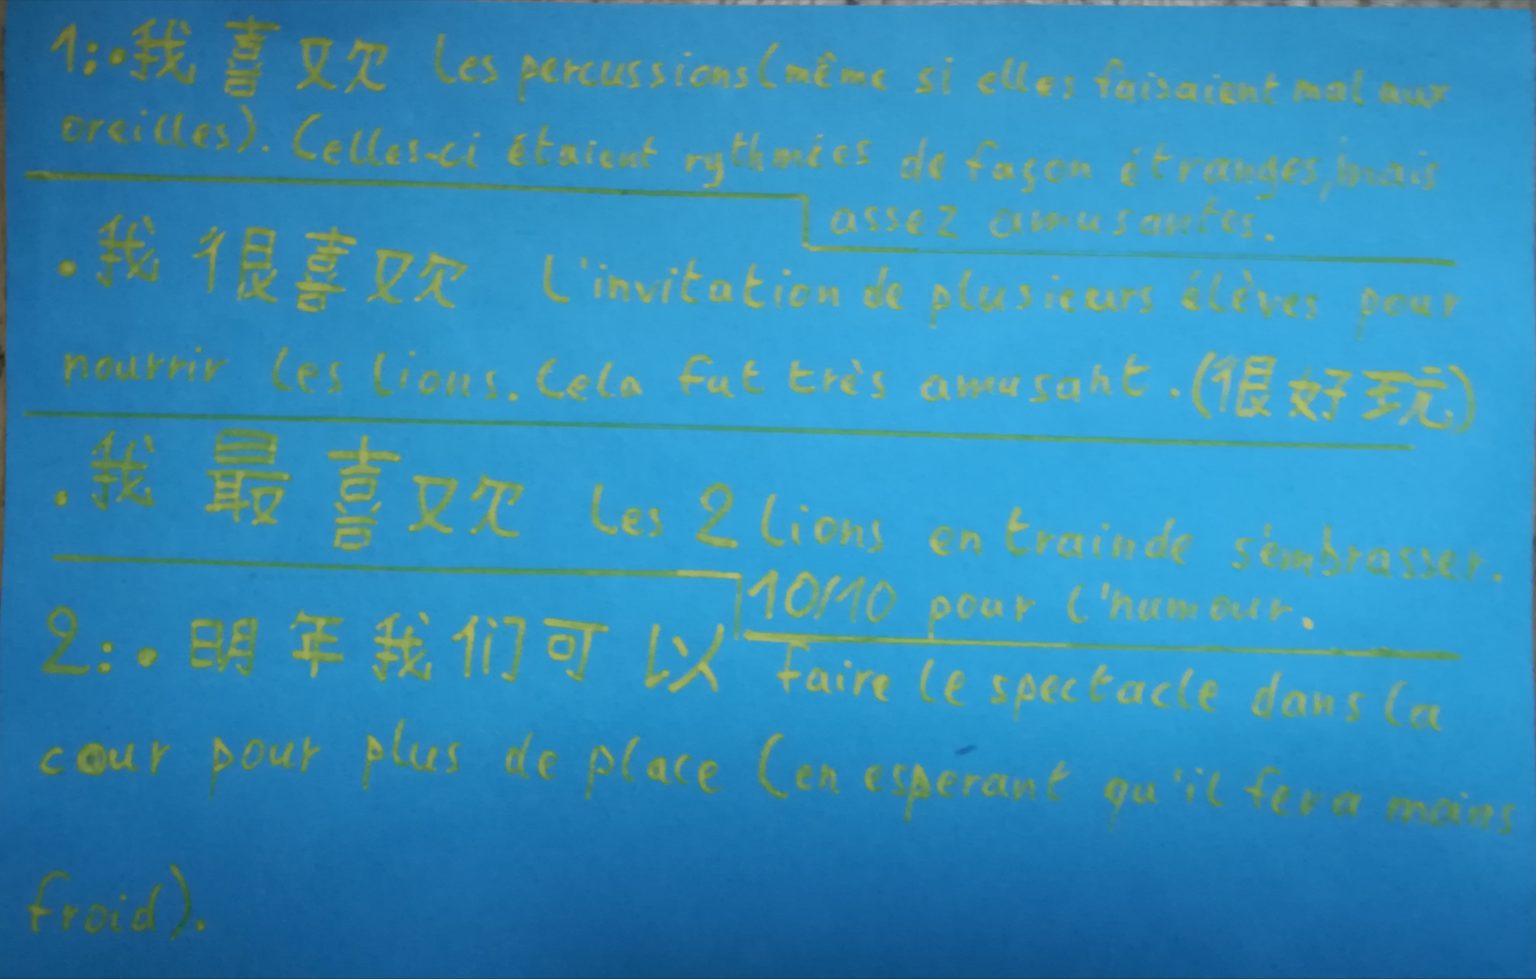 1:·我喜欢 les percussions (même si elles faisaient mal aux
oreilles). Celles-ci étaient rythmées de façon étranges, mais
assez amusantes.
·我很喜欢 l'invitation de plusieurs élèves pour
nourrir les lions. Cela fut très amusant. (很好玩)
·我最喜欢 les 2 lions en train de s'embrasser.
10/10 pour l'humour.
2:·明年我们可以 faire le spectacle dans la
cour pour plus de place (en espérant qu'il fera moins
froid).